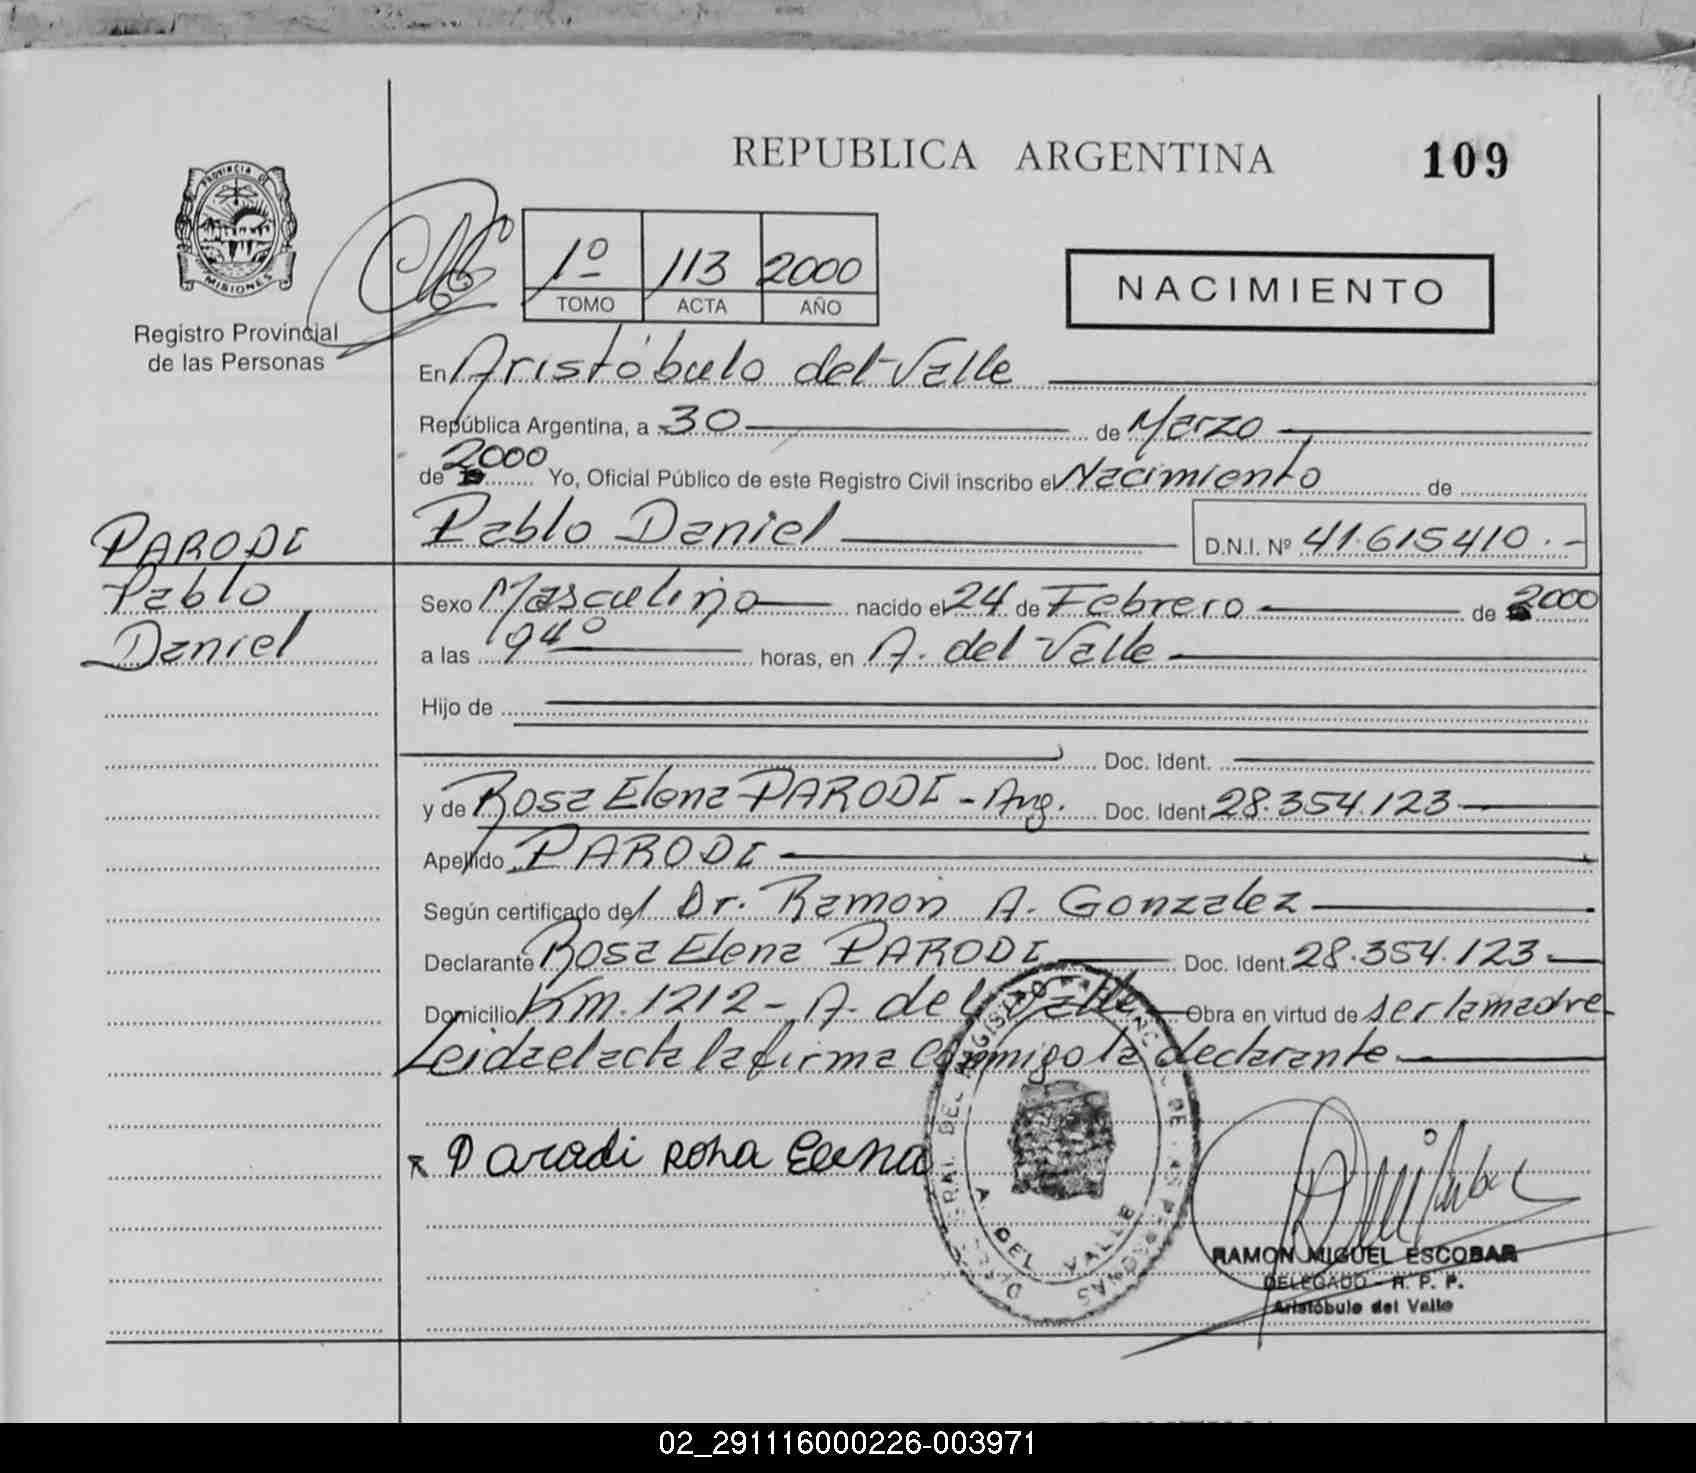 REPUBLICA ARGENTINA
109
PROVINCIA DE
MISIONES
Registro Provincial
de las Personas
1º 113 2000
TOMO ACTA AÑO
NACIMIENTO
En Aristóbulo del Valle
República Argentina, a 30 de Marzo
de 2000 Yo, Oficial Público de este Registro Civil inscribo el Nacimiento de
PARODI
Pablo
Daniel
Pablo Daniel D.N.I. Nº 41.615.410.-
Sexo Masculino nacido el 24 de Febrero de 2000
a las 940 horas, en A. del Valle
Hijo de
Doc. Ident.
y de Rosa Elena PARODI - Arg. Doc. Ident. 28.354.123
Apellido PARODI
Según certificado del Dr. Ramón A. Gonzalez
Declarante Rosa Elena PARODI Doc. Ident. 28.354.123
Domicilio Km. 1212 - A. del Valle Obra en virtud de ser la madre
Leida el acta la firma Conmigo la declarante
Parodi Rosa Elena
A DEL VALLE
RAMON MIGUEL ESCOBAR
DELEGADO - R. P. P.
Aristóbulo del Valle
02_291116000226-003971